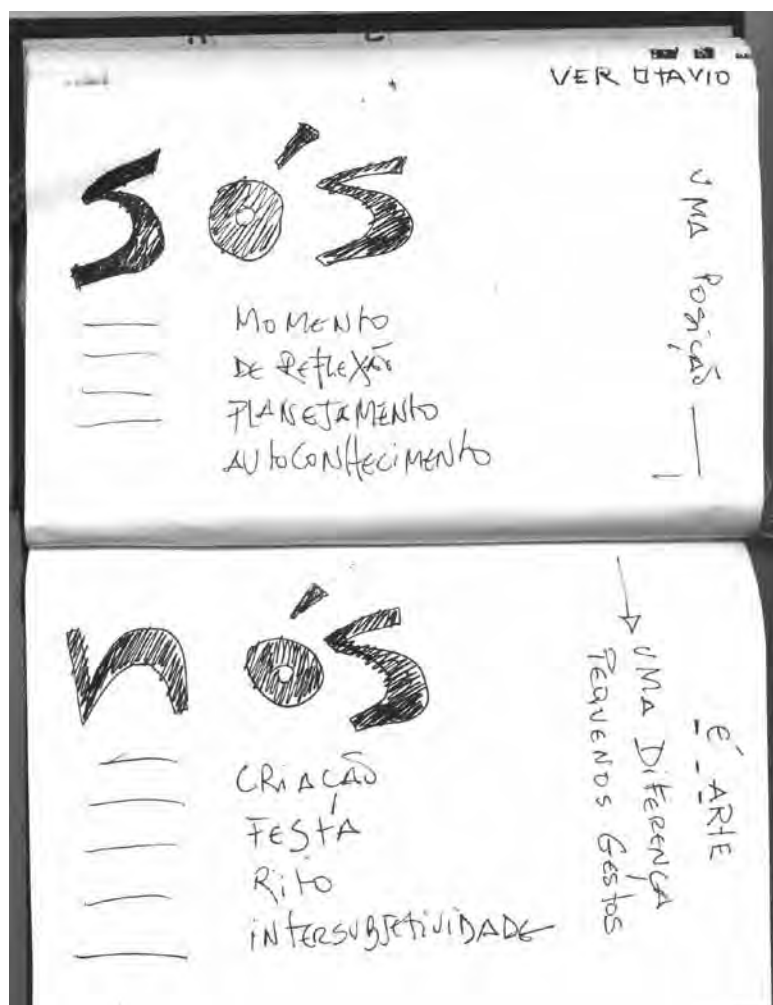 VER OTAVIO
sós
MOMENTO
DE REFLEXÃO
PLANEJAMENTO
AUTOCONHECIMENTO
UMA POSIÇÃO
nós
CRIAÇÃO
FESTA
RITO
INTERSUBJETIVIDADE
UMA DIFERENÇA
PEQUENOS GESTOS
É ARTE